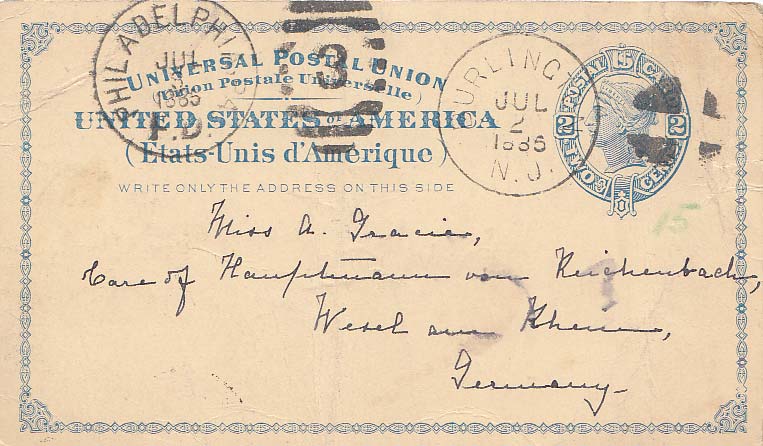 PHILADELPHIA
JUL
1885
3
BURLINGTON
JUL
2
1885
N.J.
UNIVERSAL POSTAL UNION
(Union Postale Universelle)
UNITED STATES OF AMERICA
(États-Unis d'Amérique)
WRITE ONLY THE ADDRESS ON THIS SIDE
POSTAL CARD
U S
2 2
TWO CENTS
15
Miss A. Gracie,
Care of Hauptmann von Reichenbach,
Wesel am Rhein,
Germany